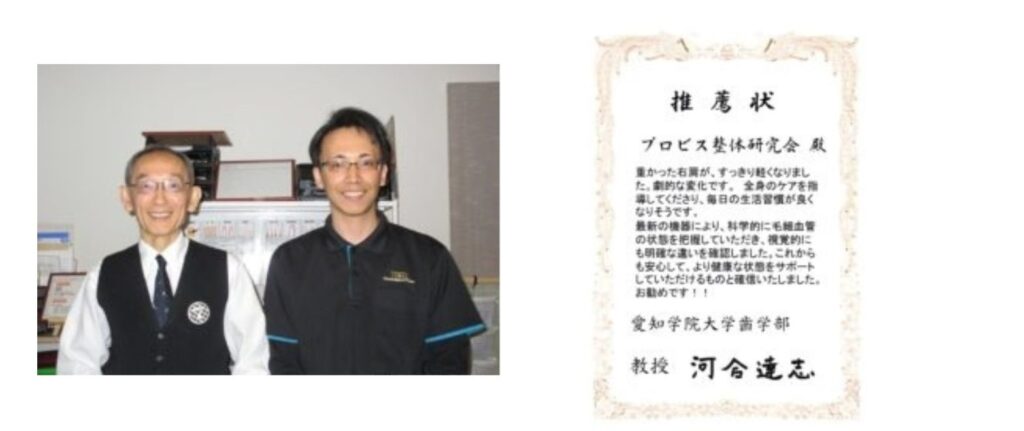 推薦状
プロビス整体研究会 殿
重かった右肩が、すっきり軽くなりまし
た。劇的な変化です。 全身のケアを指
導してくださり、毎日の生活習慣が良く
なりそうです。
最新の機器により、科学的に毛細血管
の状態を把握していただき、視覚的に
も明確な違いを確認しました。これから
も安心して、より健康な状態をサポート
していただけるものと確信いたしました。
お勧めです！！
愛知学院大学歯学部
教授 河合達志